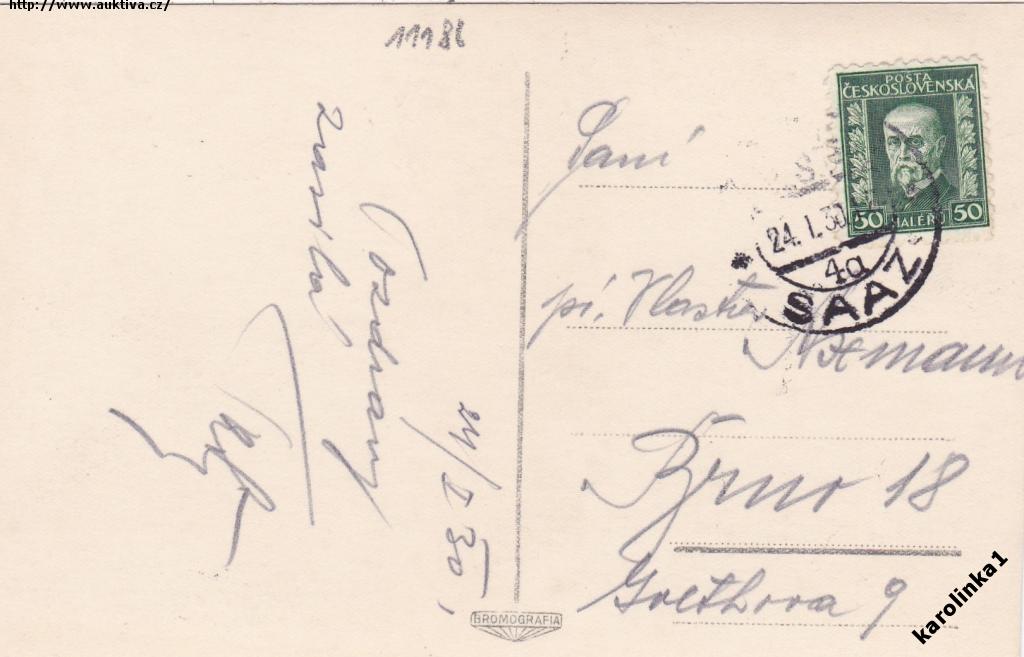 http://www.auktiva.cz/
11186
Pozdrav
zasílá
24/I 30.
BROMOGRAFIA
POŠTA
ČESKOSLOVENSKÁ
50 HALÉŘŮ 50
24. I. 30
4a
SAAZ
Paní
pí. Vlasta
Brno 18
Goethova 9
karolinka1